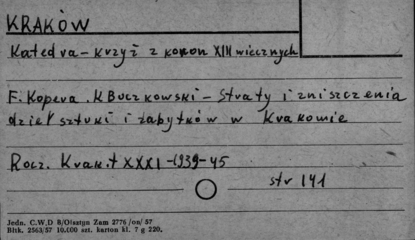 KRAKÓW
Katedra - krzyż z koron XIII wiecznych
F. Kopera. K Buczkowski - Straty i zniszczenia
dzieł sztuki i zabytków w Krakowie
Rocz. Krak. t XXXI - 1939-45
str 141
Jedn. C.W.D B/Olsztyn Zam 2776 /on/ 57
Bltk. 2563/57 10.000 szt. karton kl. 7 g 220.